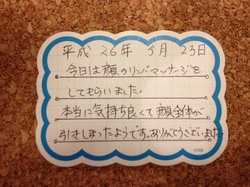 平成 26年 5月 23日
今日は顔のリンパマッサージを
してもらいました。
本当に気持ち良くて顔全体が
引きしまったようです。ありがとうございました